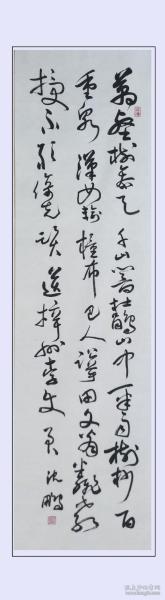 萬壑樹參天千山響杜鵑山中一夜雨樹杪百
重泉漢女輸橦布巴人訟芋田文翁翻教
授不敢倚先賢送梓州李使君沈鵬